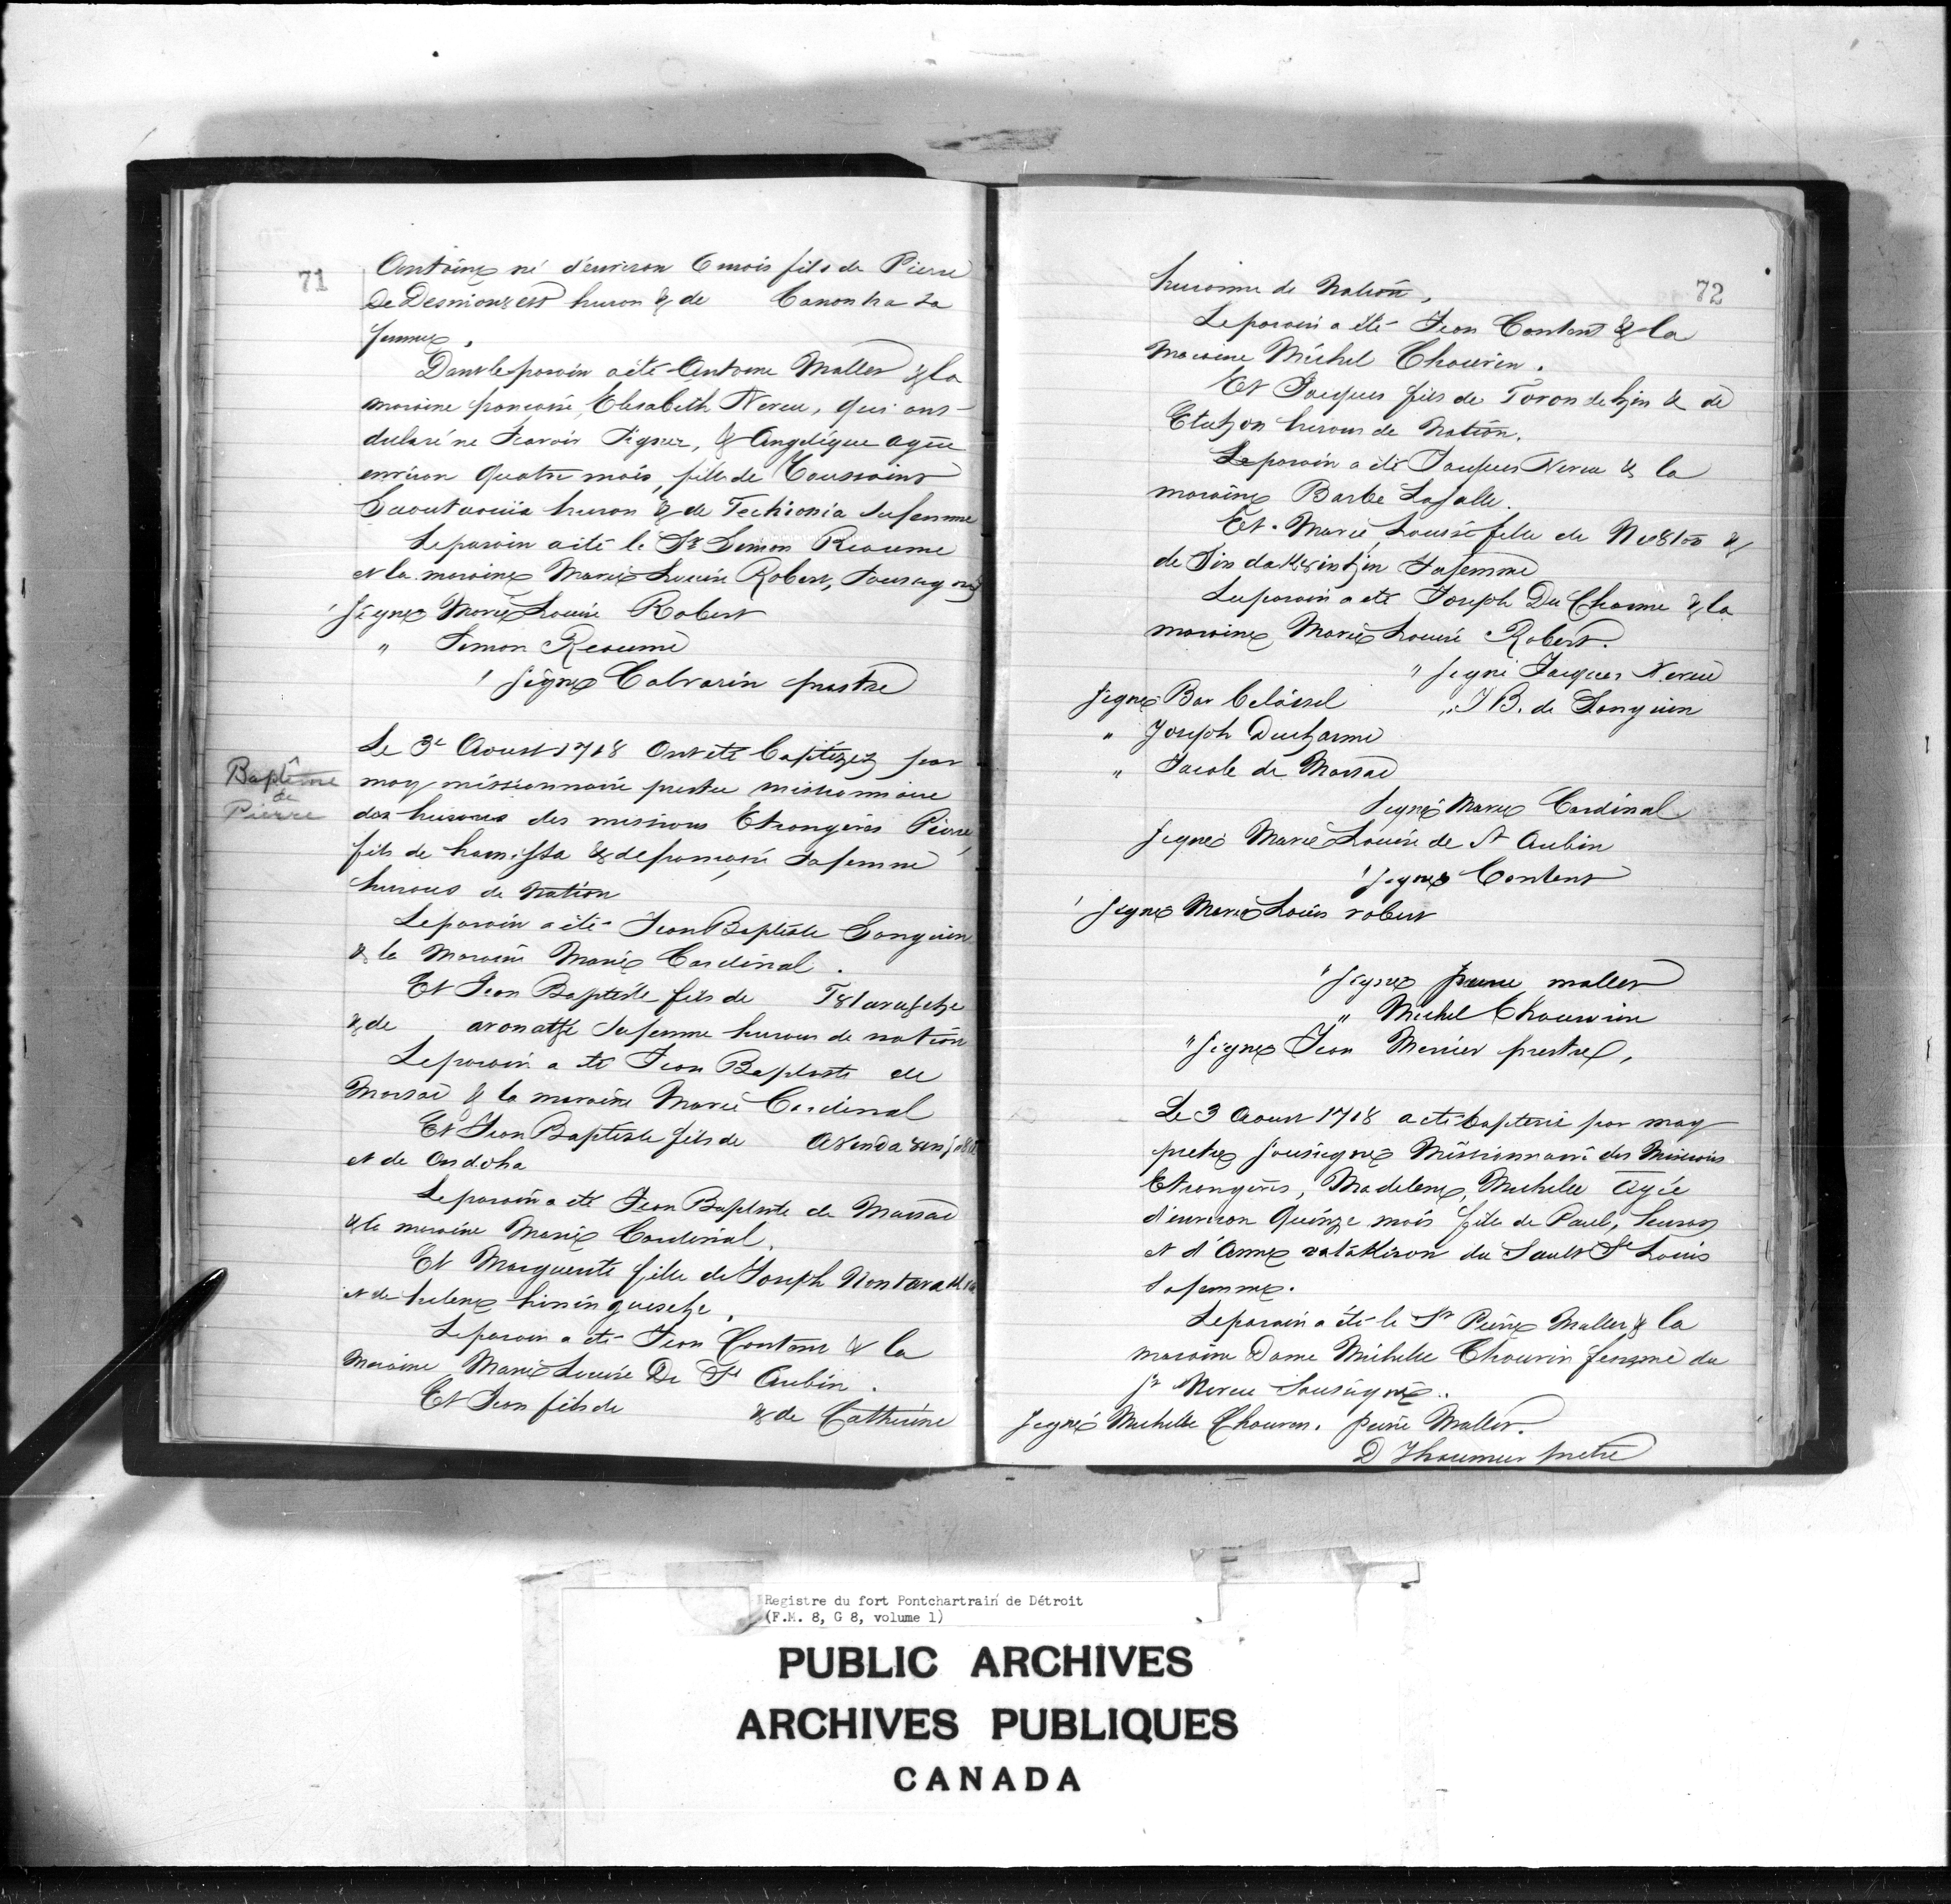 71
Antoine né d'environ 6 mois fils de Pierre
De Desnionzess huron & de Canonha sa
femme.
Dont le parain a ète Antoine Maller & la
maraine francoise Elisabeth Nereu, qui ont
declaré ne scavoir signer, & Angélique agée
environ Quatre mois, fille de Toussaint
huron & de Techionia sa femme
Le parain a été le Sr Simon Reaume
et la maraine Marie Louise Robert, Soussignés
signé Marie Louise Robert
" Simon Reaume
signé Calvarin prestre
Baptême
de
Pierre
Le 3e Aoust 1718 Ont été baptizez par
moy missionnaire prestre missionnaire
des hurons des missions Etrangeres Pierre
fils de & de francoise sa femme
hurons de Nation
Le parain a été Jean Baptiste Songuien
& la Maraine Marie Cardinal.
Et Jean Baptiste fils de
& de sa femme hurons de nation
Le parain a été Jean Baptiste de
Marsac & la maraine Marie Cardinal
Et Jean Baptiste fils de
et de Ondoha
Le parain a été Jean Baptiste de Marsac
& la maraine Marie Cardinal.
Et Marguerite fille de Joseph
et de helene
Le parain a été Jean Contant & la
Maraine Marie Louise De St Aubin.
Et Jean fils de & de Catherine
72
huronne de Nation,
Le parain a été Jean Content & la
Maraine Michel Chauvin.
Et Jacques fils de & de
hurons de Nation.
Le parain a été Jacques Nereu & la
maraine Barbe Lasalle.
Et Marie Louise fille de &
de sa femme
Le parain a été Joseph Du Charme & la
maraine Marie Louise Robert.
" signé Jacques Nereu
signé Bar " J B. de Songuien
" Joseph Ducharme
" Jacob de Marsac
signé Marie Cardinal
signé Marie Louise de St Aubin
signé Content
signé Marie Louis robert
" signé pierre maller
" Michel Chauvin
" signé Jean Mercier prestre,
Le 3 Aoust 1718 a été baptisé par moy
pretre soussigné Missionnaire des Missions
Etrangeres, Madelene, Michelle Agée
d'environ Quinze mois fille de Paul, huron
et d'Anne du Sault St Louis
sa femme.
Le parain a été le Sr Pierre Maller & la
maraine Dame Michelle Chauvin femme du
Sr Nereu Soussignés.
signé Michelle Chauvin. pierre Maller.
D Thaumur pretre
Registre du fort Pontchartrain de Détroit
(F.M. 8, G 8, volume 1)
PUBLIC ARCHIVES
ARCHIVES PUBLIQUES
CANADA